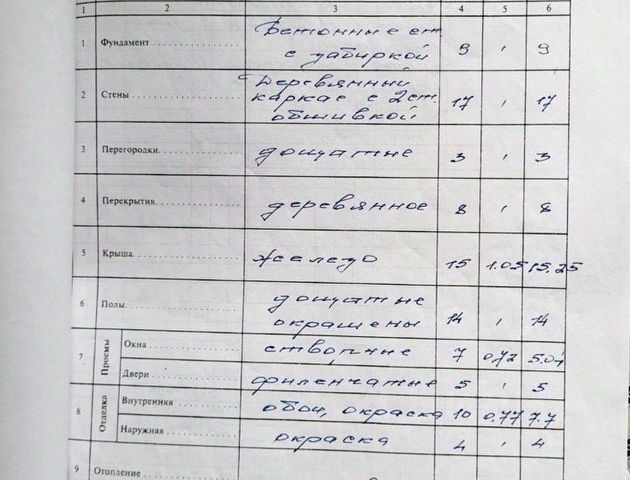 1 2 3 4 5 6
1 Фундамент Бетонные ст. с забиркой 9 1 9
2 Стены Деревянный каркас с 2 ст. обшивкой 17 1 17
3 Перегородки дощатые 3 1 3
4 Перекрытия деревянное 8 1 8
5 Крыша железо 15 1.05 15.25
6 Полы дощатые окрашены 14 1 14
7 Проемы Окна створчные 7 0,72 5.04
Двери филенчатые 5 1 5
8 Отделка Внутренняя обои, окраска 10 0.77 7.7
Наружная окраска 4 1 4
9 Отопление